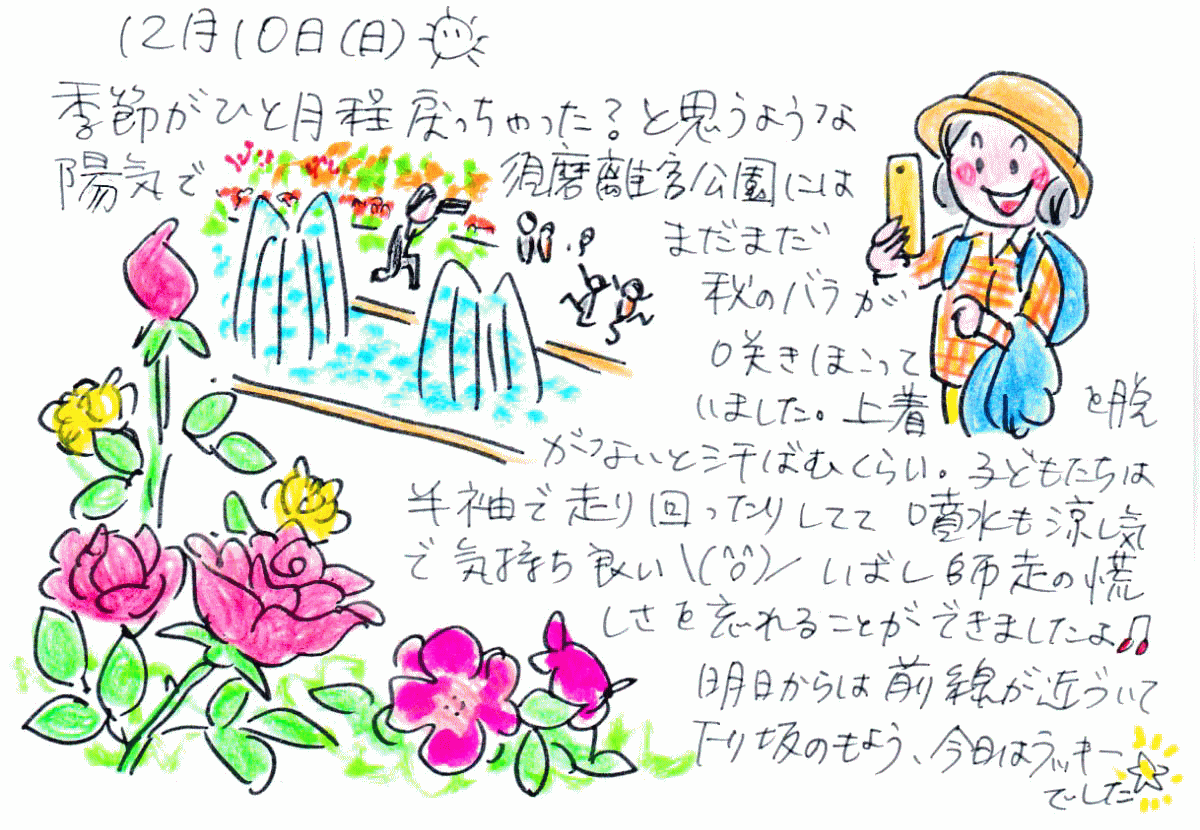 12月10日(日)
季節がひと月程戻っちゃった?と思うような
陽気で 須磨離宮公園には
まだまだ
秋のバラが
咲きほこって
いました。上着を脱
がないと汗ばむくらい。子どもたちは
半袖で走り回ったりしてて 噴水も涼し気
で気持ち良い\(^o^)/ いばし師走の慌
しさを忘れることができましたよ♫
明日からは前線が近づいて
下り坂のもよう、今日はラッキー
でした☆